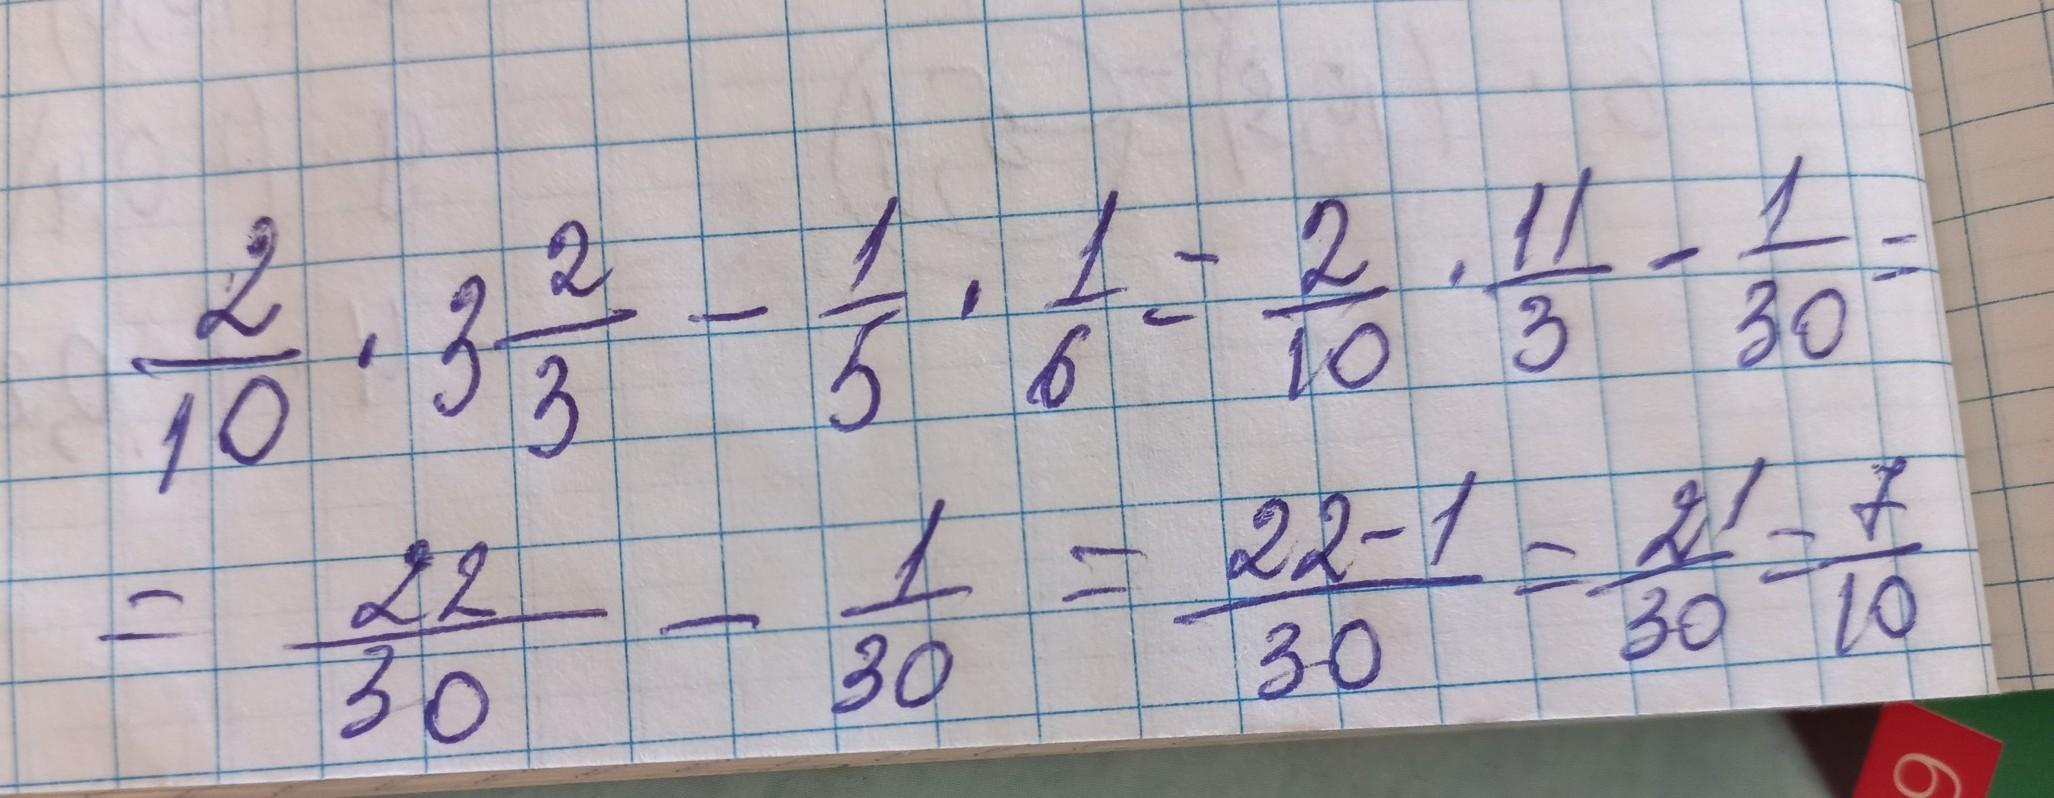 2/10 · 3 2/3 - 1/5 · 1/6 = 2/10 · 11/3 - 1/30 =
= 22/30 - 1/30 = 22-1/30 = 21/30 = 7/10
6